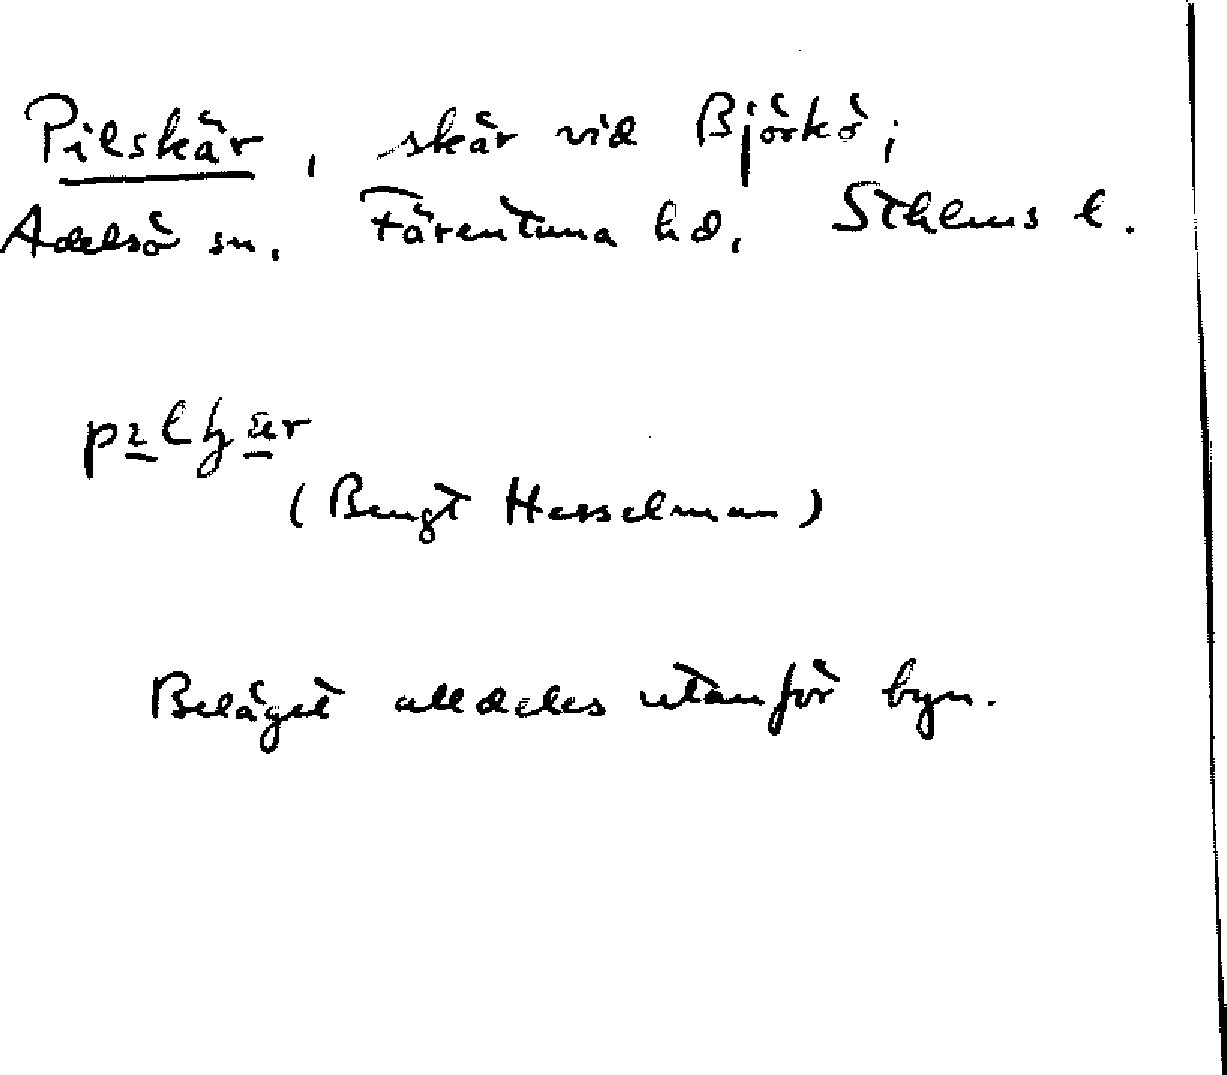 Pilskär, skär vid Björkö,
Adelsö sn, Färentuna hd, Sthlms l.
(Bengt Hesselman)
Beläget alldeles utanför byn.